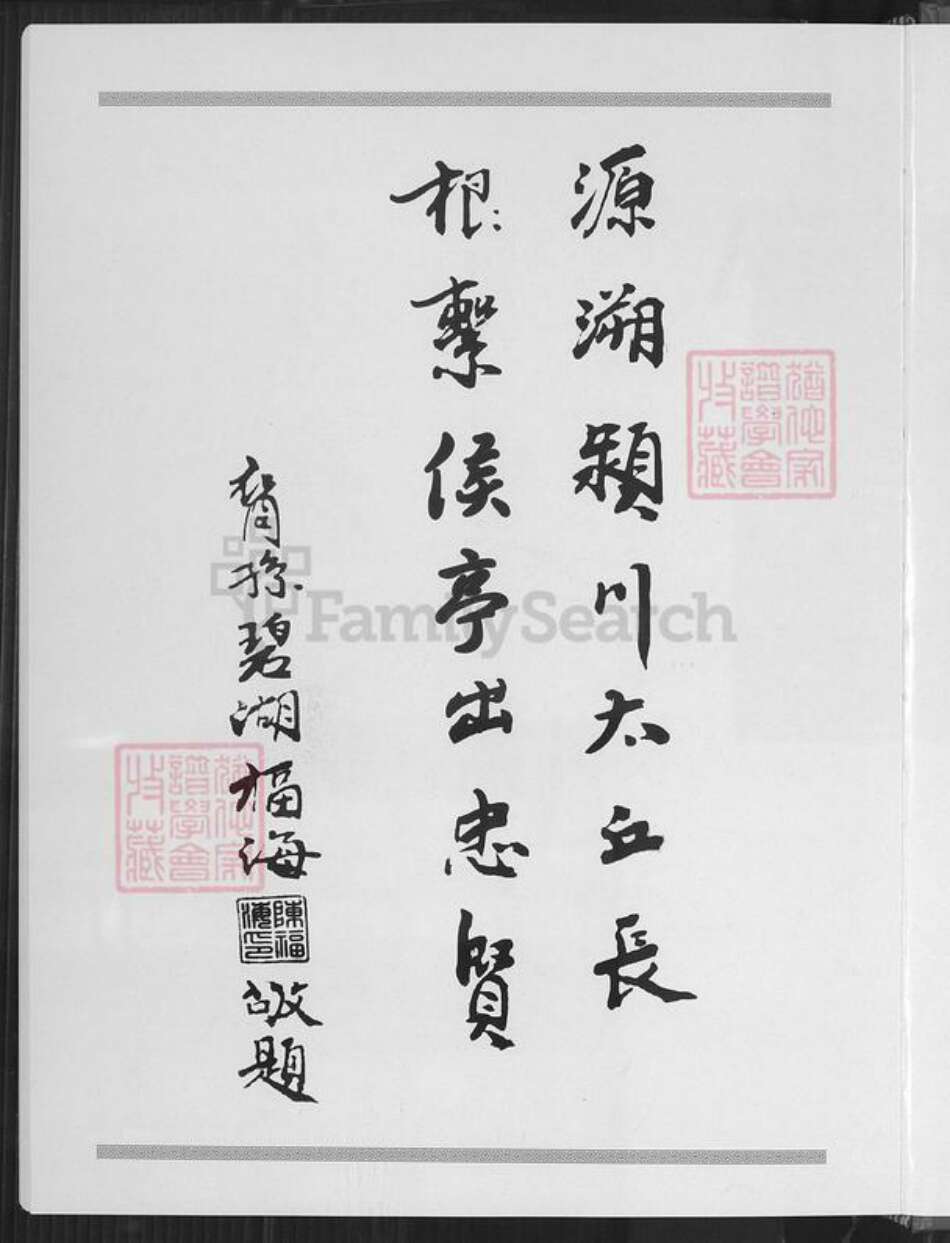 源溯潁川太丘長
根繫侯亭出忠賢
裔孫碧湖福海
陳福海印
敬題
猶他家譜學會收藏
猶他家譜學會收藏
FamilySearch